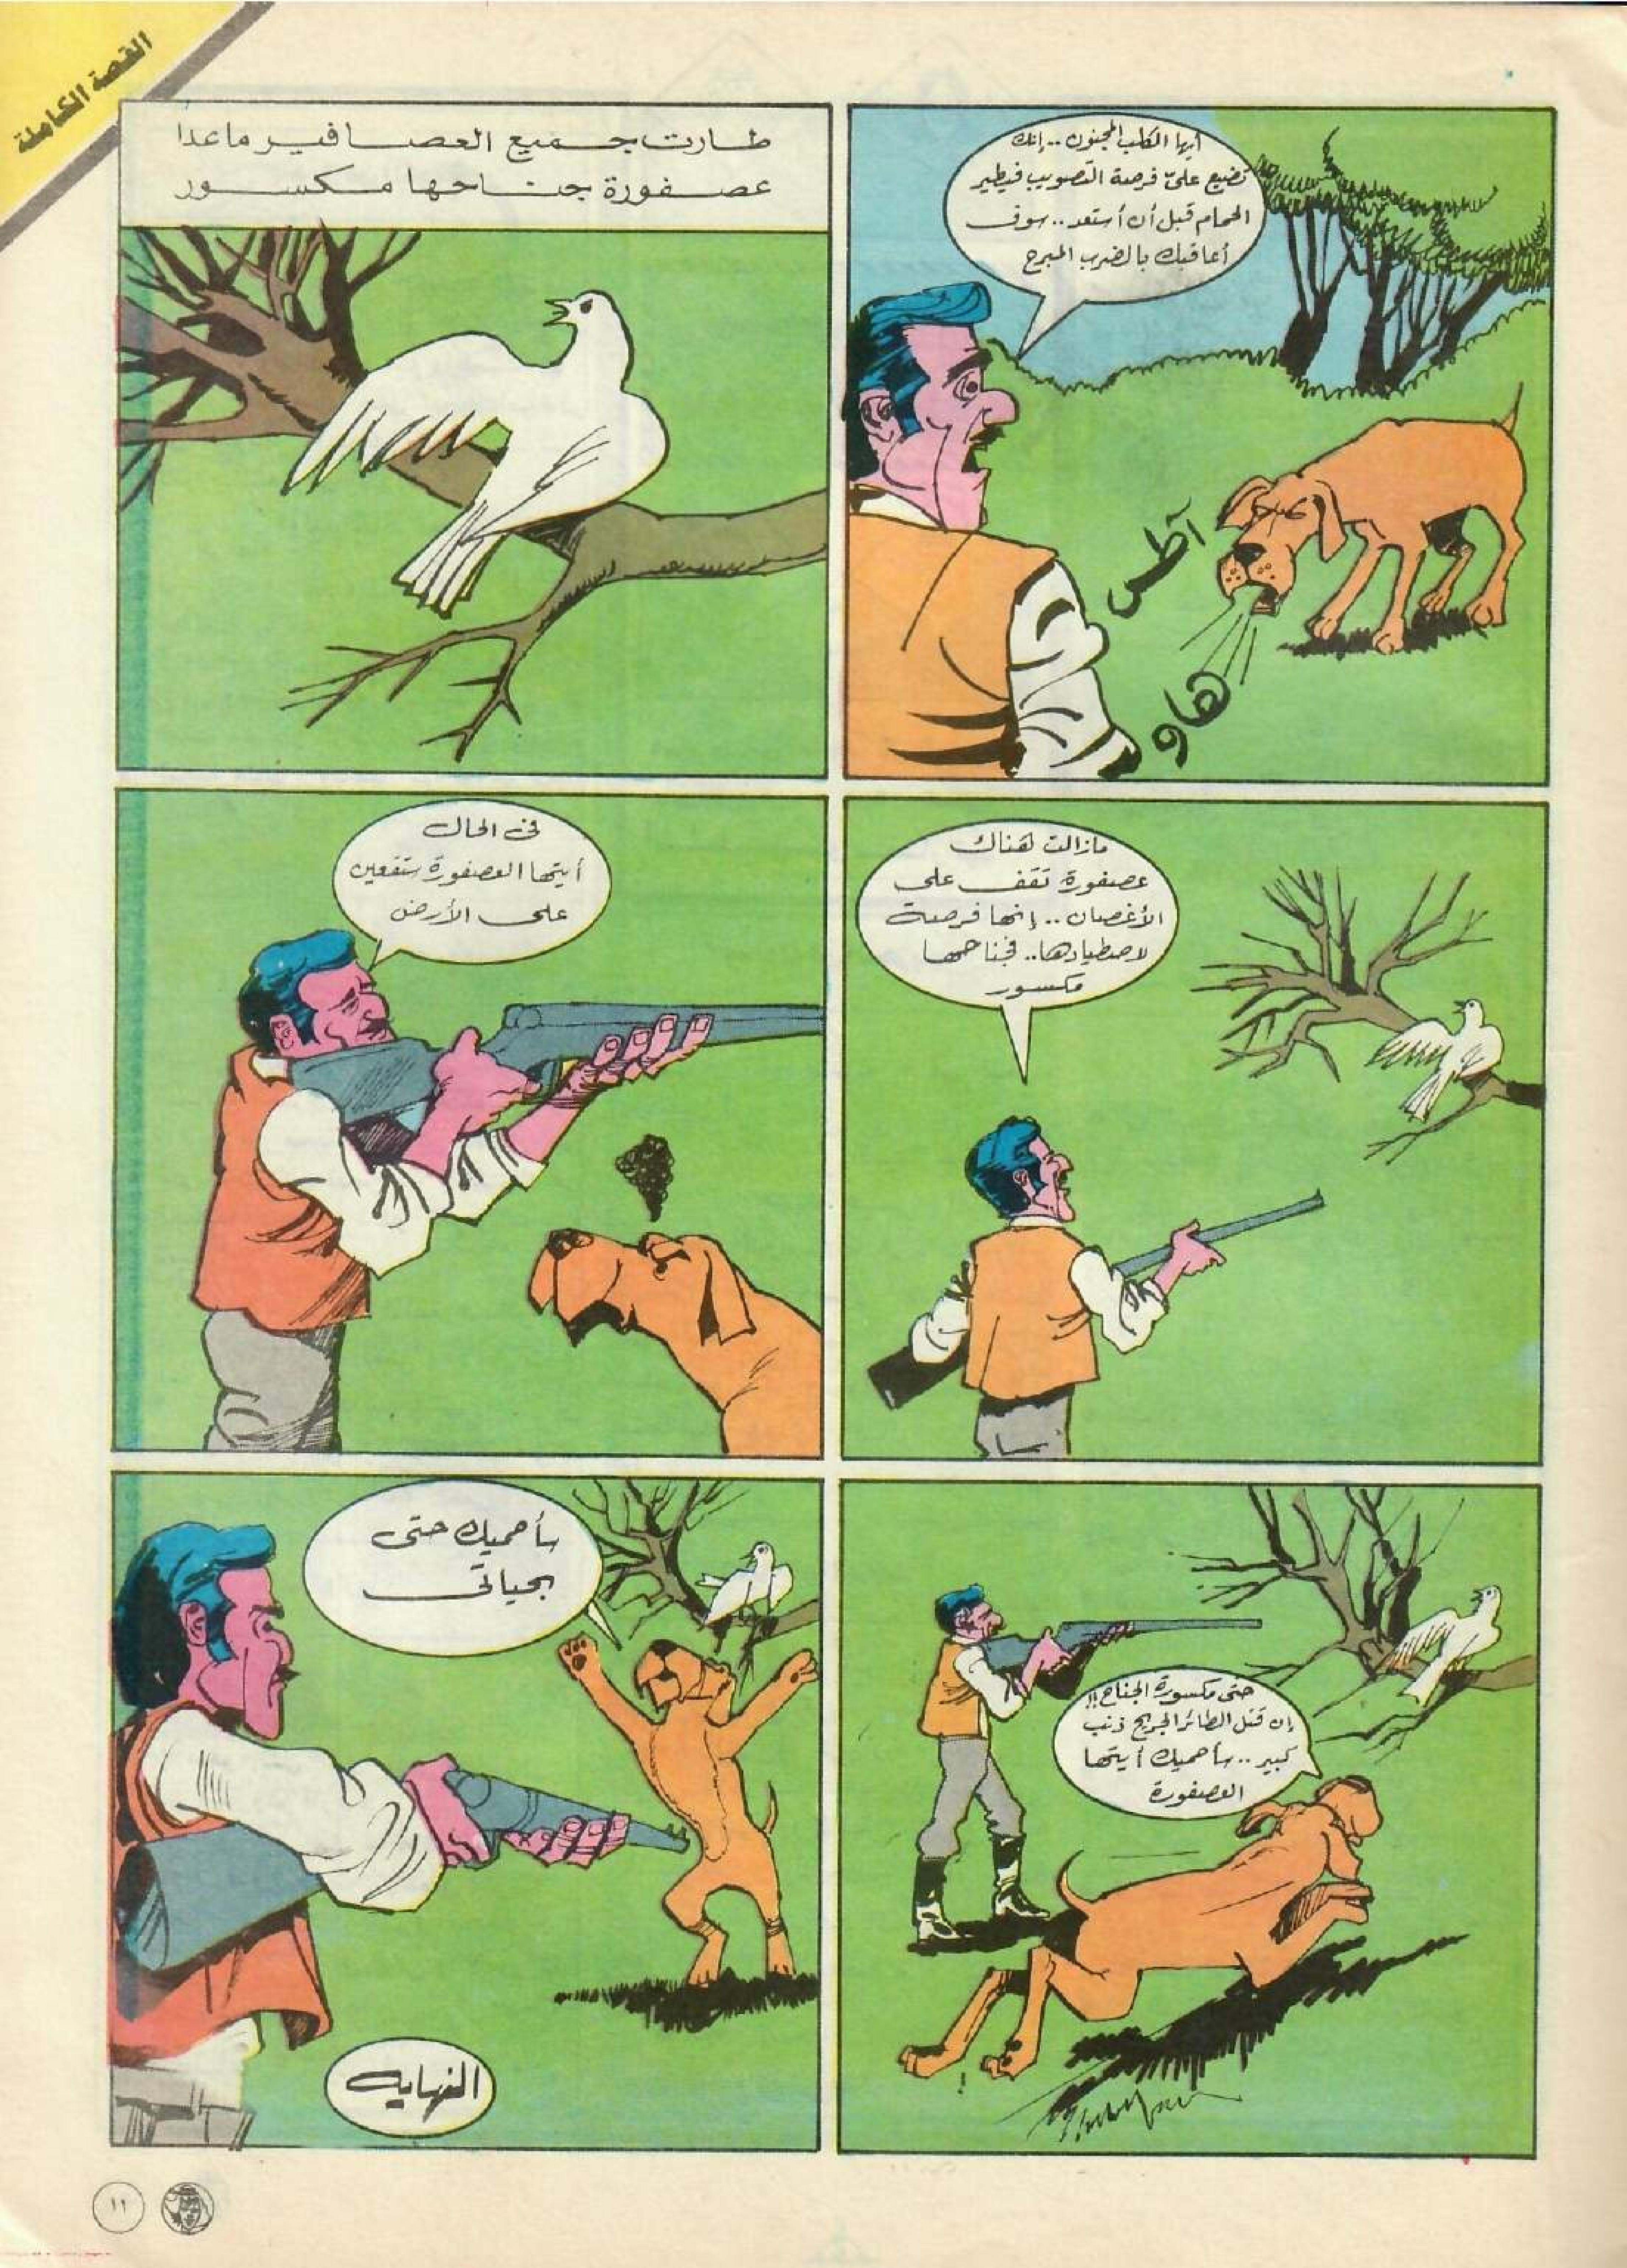 القصة الكاملة
أيها الكلب المجنون .. إنك
تضيع علىّ فرصة التصويب فيطير
الحمام قبل أن أستعد .. سوف
أعاقبك بالضرب المبرح
آطس
هاو
طارت جميع العصافير ماعدا
عصفورة جناحها مكسور
مازالت هناك
عصفورة تقف على
الأغصان .. إنها فرصة
لاصطيادها .. فجناحها
مكسور
فى الحال
أيتها العصفورة ستقعين
على الأرض
حتى مكسورة الجناح !!
إن قتل الطائر الجريح ذنب
كبير .. سأحميك أيتها
العصفورة
سأحميك حتى
بحياتى
النهايه
١١